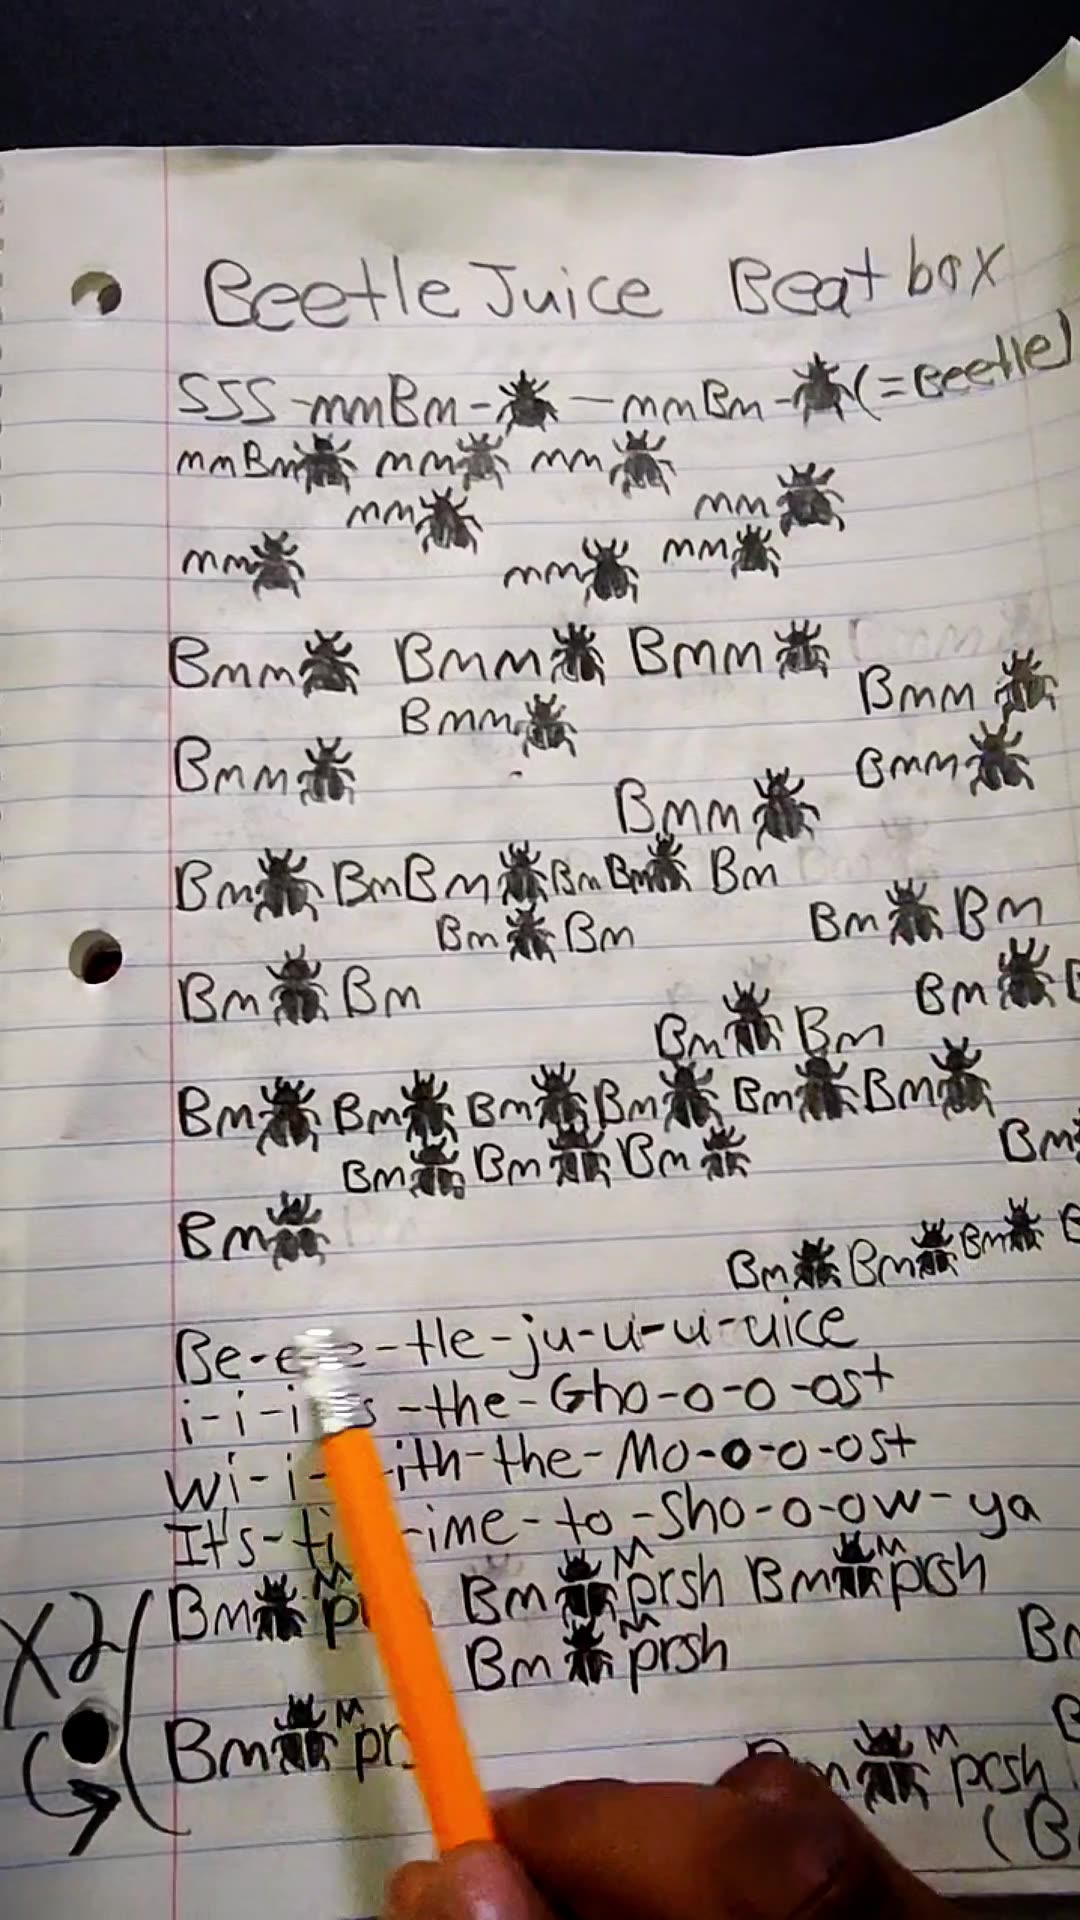 BeetleJuice Beatbox
SSS-mmBm- - mmBm- (=Beetle)
mmBm mm mm
mm mm
mm mm mm
Bmm Bmm Bmm
Bmm Bmm
Bmm Bmm
Bmm
Bm BmBm Bm Bm Bm
Bm Bm Bm Bm
Bm Bm Bm
Bm Bm
Bm Bm Bm Bm Bm Bm
Bm Bm Bm Bm
Bm
Bm Bm Bm
Be-e -tle-ju-u-u-uice
i-i-i s-the-Gho-o-o-ost
Wi-i- ith-the-Mo-o-o-ost
It's-ti -ime-to-sho-o-ow-ya
X2 (Bm M Bm M prsh Bm M prsh
Bm M prsh
Bm M M prsh